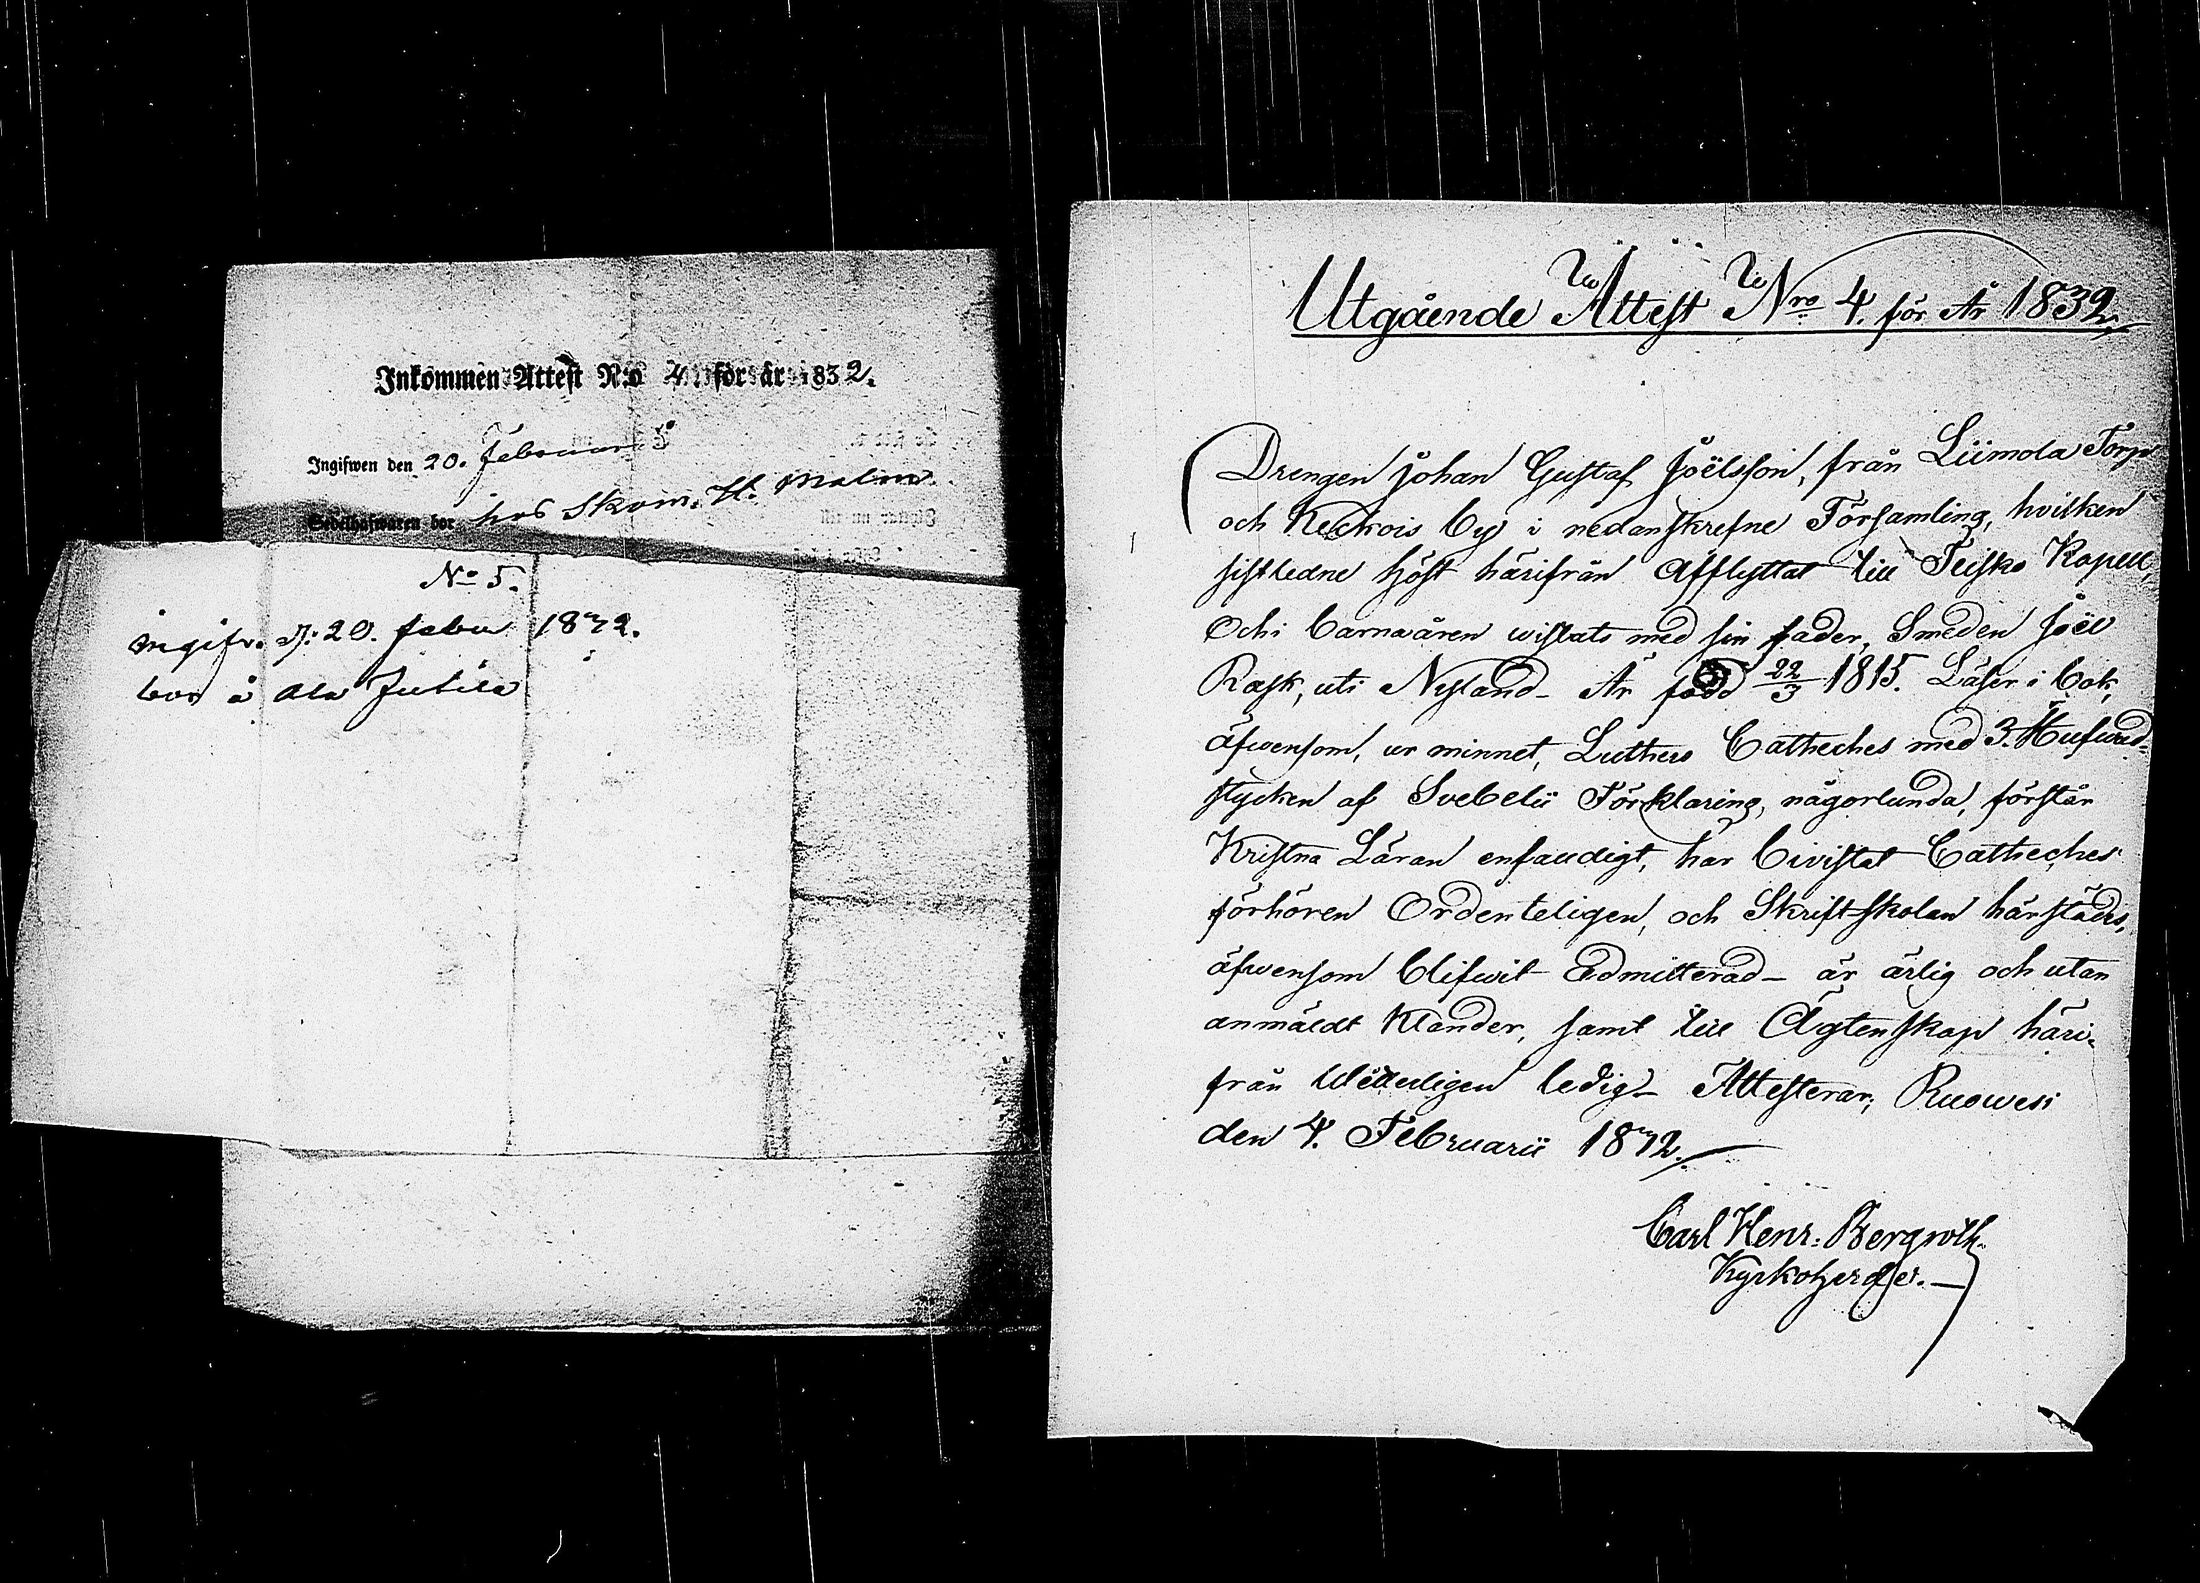 Inkommen Attest N:o 4 för år 1832.
Ingifwen den 20. Februari
Sedelhafwaren bor hos Skom. H. Malm.
No 5.
ingifv. d: 20. febru 1832.
bor å Ala Jutila
Utgående Attest Nro 4. för År 1832.
Drengen Johan Gustaf Joëlsson, från Liimola Torp
och Keckois by i nedanskrefne Församling, hvilken
sistledne höst härifrån afflyttat till Teisko Kapell,
Och i barnaåren wistats med sin fader, Smeden Joël
Rask, uti Nyland – Är född 22/3 1815. Läser i bok,
äfwensom, ur minnet, Luthers Catheches med 3. Hufwud-
stycken af Svebelii Förklaring, någorlunda, förstår
Kristna Läran enfaldigt, har bivistat Catheches
förhören Ordenteligen, och Skriftskolan härstädes,
äfwensom blifwit Admitterad – är ärlig och utan
anmäldt klander, samt till Ägtenskap häri-
från Wetterligen ledig – Attesterar; Ruowesi
den 4. Februarii 1832.
Carl Henr: Bergroth.
Kyrkoherde.